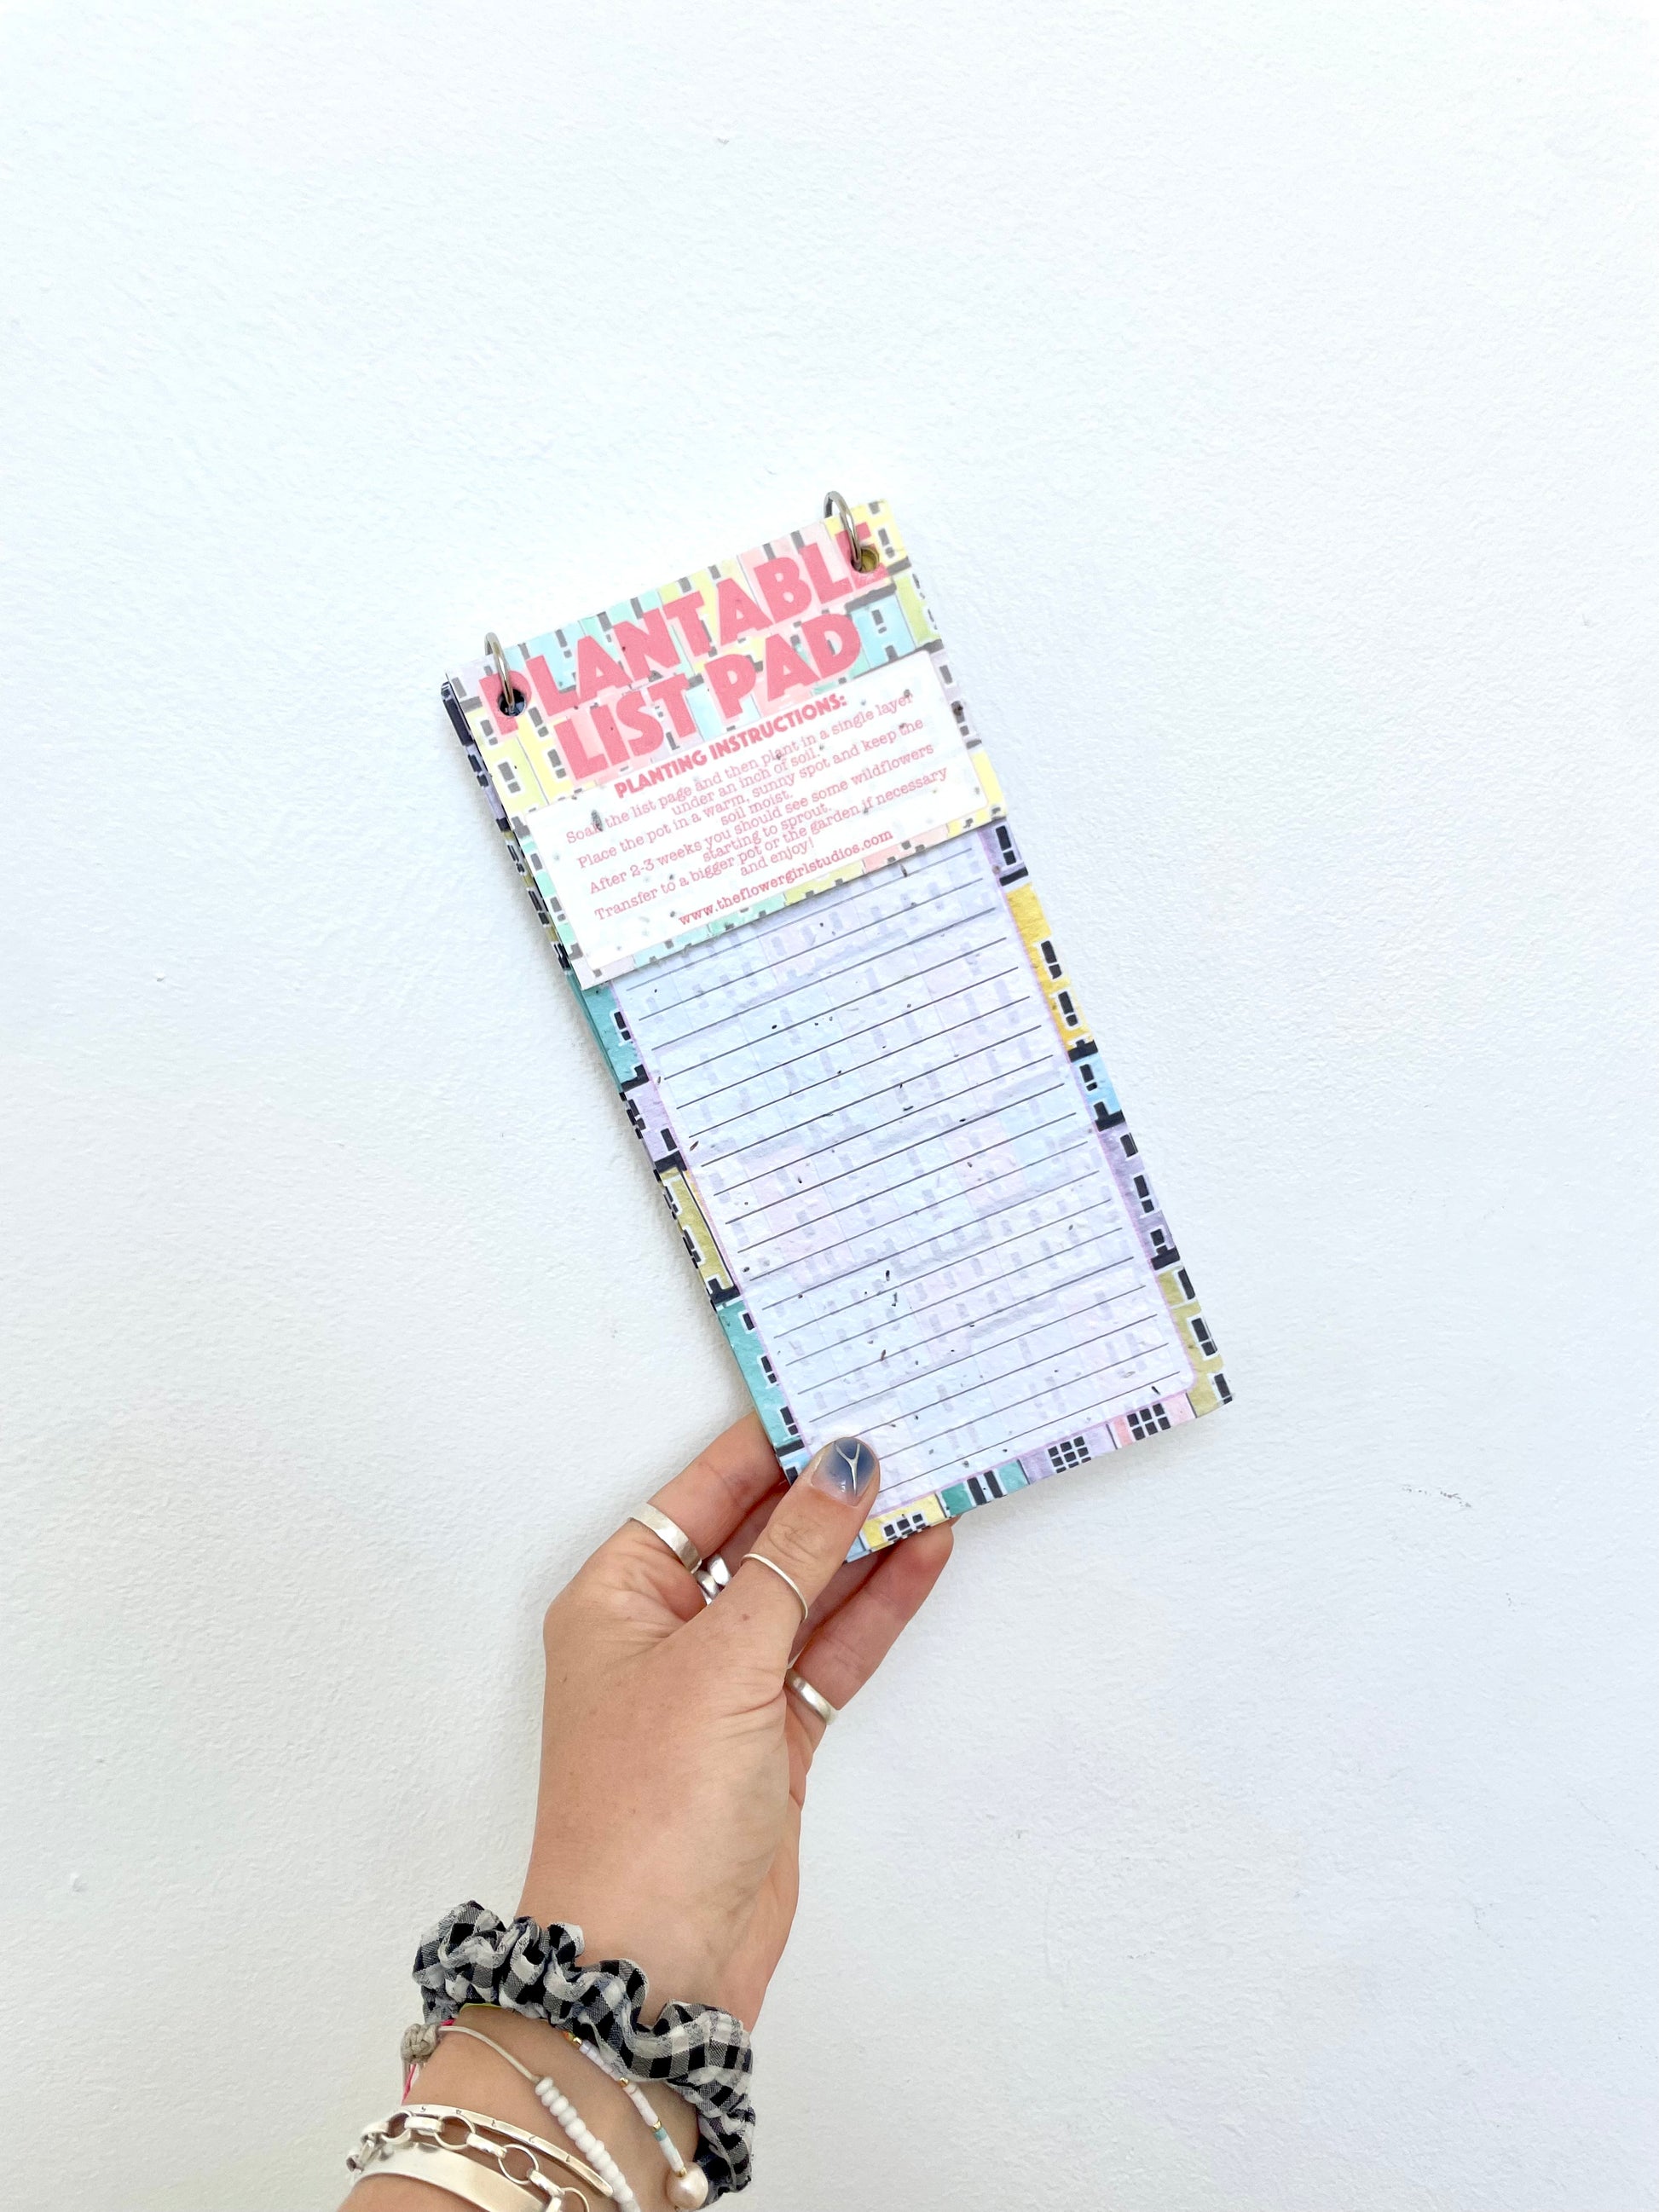 PLANTABLE
LIST PAD
PLANTING INSTRUCTIONS:
Soak the list page and then plant in a single layer
under an inch of soil.
Place the pot in a warm, sunny spot and keep the
soil moist.
After 2-3 weeks you should see some wildflowers
starting to sprout.
Transfer to a bigger pot or the garden if necessary
and enjoy!
www.theflowergirlstudios.com